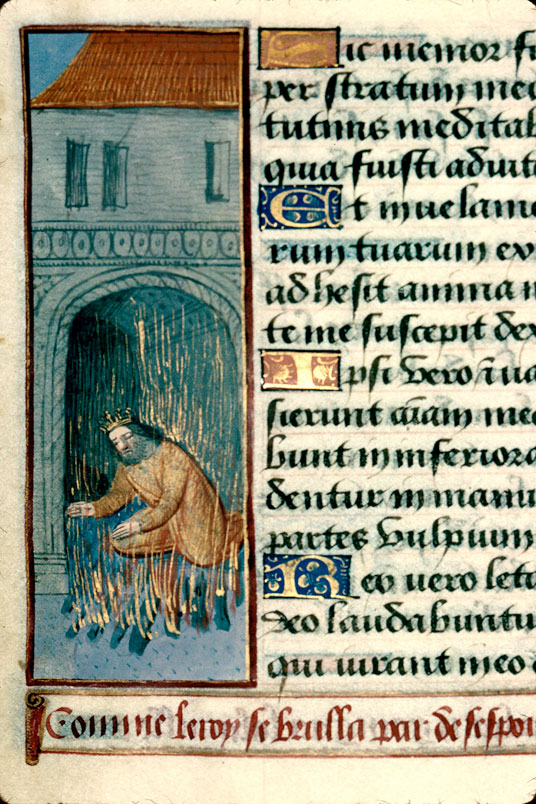 Sic memor fu
per stratum meu
tutinis meditab
quia fuisti adiuto
Et in uelame
rum tuarum ex
adhesit anima m
te me suscepit dex
Ipsi vero i ua
sierunt aīam meā
bunt in inferiora
dentur in manu
partes vulpium
Rex uero leta
deo laudabuntu
qui iurant in eo
Comme le roy se brusla par desespoi